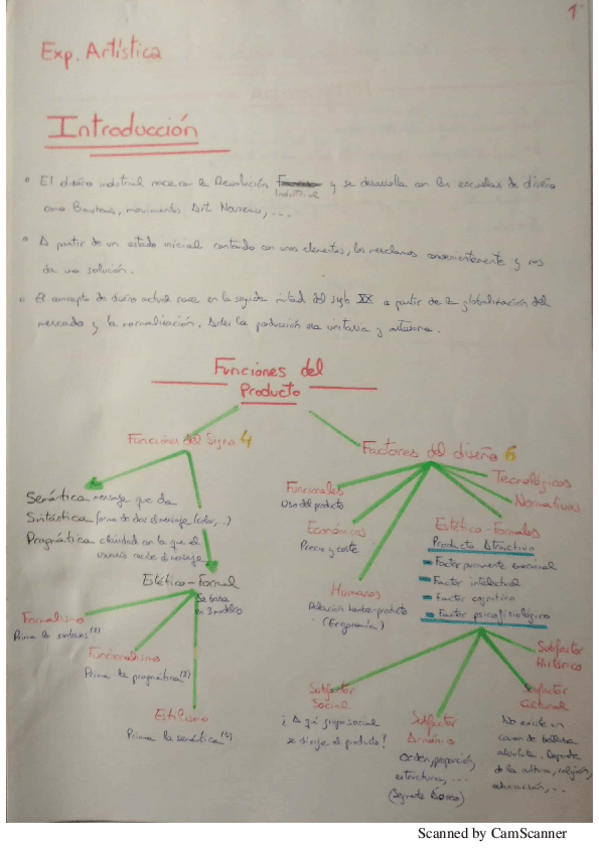 1
Exp. Artística
Introducción
• El diseño industrial nace con la Revolución Industrial y se desarrolla con las escuelas de diseño
como Bauhaus, movimientos Art Nouveau, ...
• A partir de un estado inicial contando con unos elementos, los mezclamos convenientemente y nos
da una solución.
• El concepto de diseño actual nace en la segunda mitad del siglo XX a partir de la globalización del
mercado y la normalización. Antes la producción era unitaria y artesana.
Funciones del
Producto
Funciones del Signo 4
Semántica mensaje que da
Sintáctica forma de dar el mensaje (color, ...)
Pragmática claridad con la que el
usuario recibe el mensaje
Estético-Formal
Se basa
en 3 modelos
Formalismo
Prima la sintaxis
Funcionalismo
Prima la pragmática
Estilismo
Prima la semántica
Factores del diseño 6
Tecnológicos
Normativos
Funcionales
Uso del producto
Económicos
Precio y coste
Humanos
Relación hombre-producto
(Ergonomía)
Estético-Formales
Producto Atractivo
Factor puramente emocional
Factor intelectual
Factor cognitivo
Factor psicofisiológico
Subfactor
Social
¿A qué grupo social
se dirige el producto?
Subfactor
Armónico
Orden, proporción,
estructura, ...
(Segmento Áureo)
Subfactor
Cultural
No existe un
canon de belleza
absoluta. Depende
de la cultura, religión,
educación, ...
Subfactor
Histórico
Scanned by CamScanner